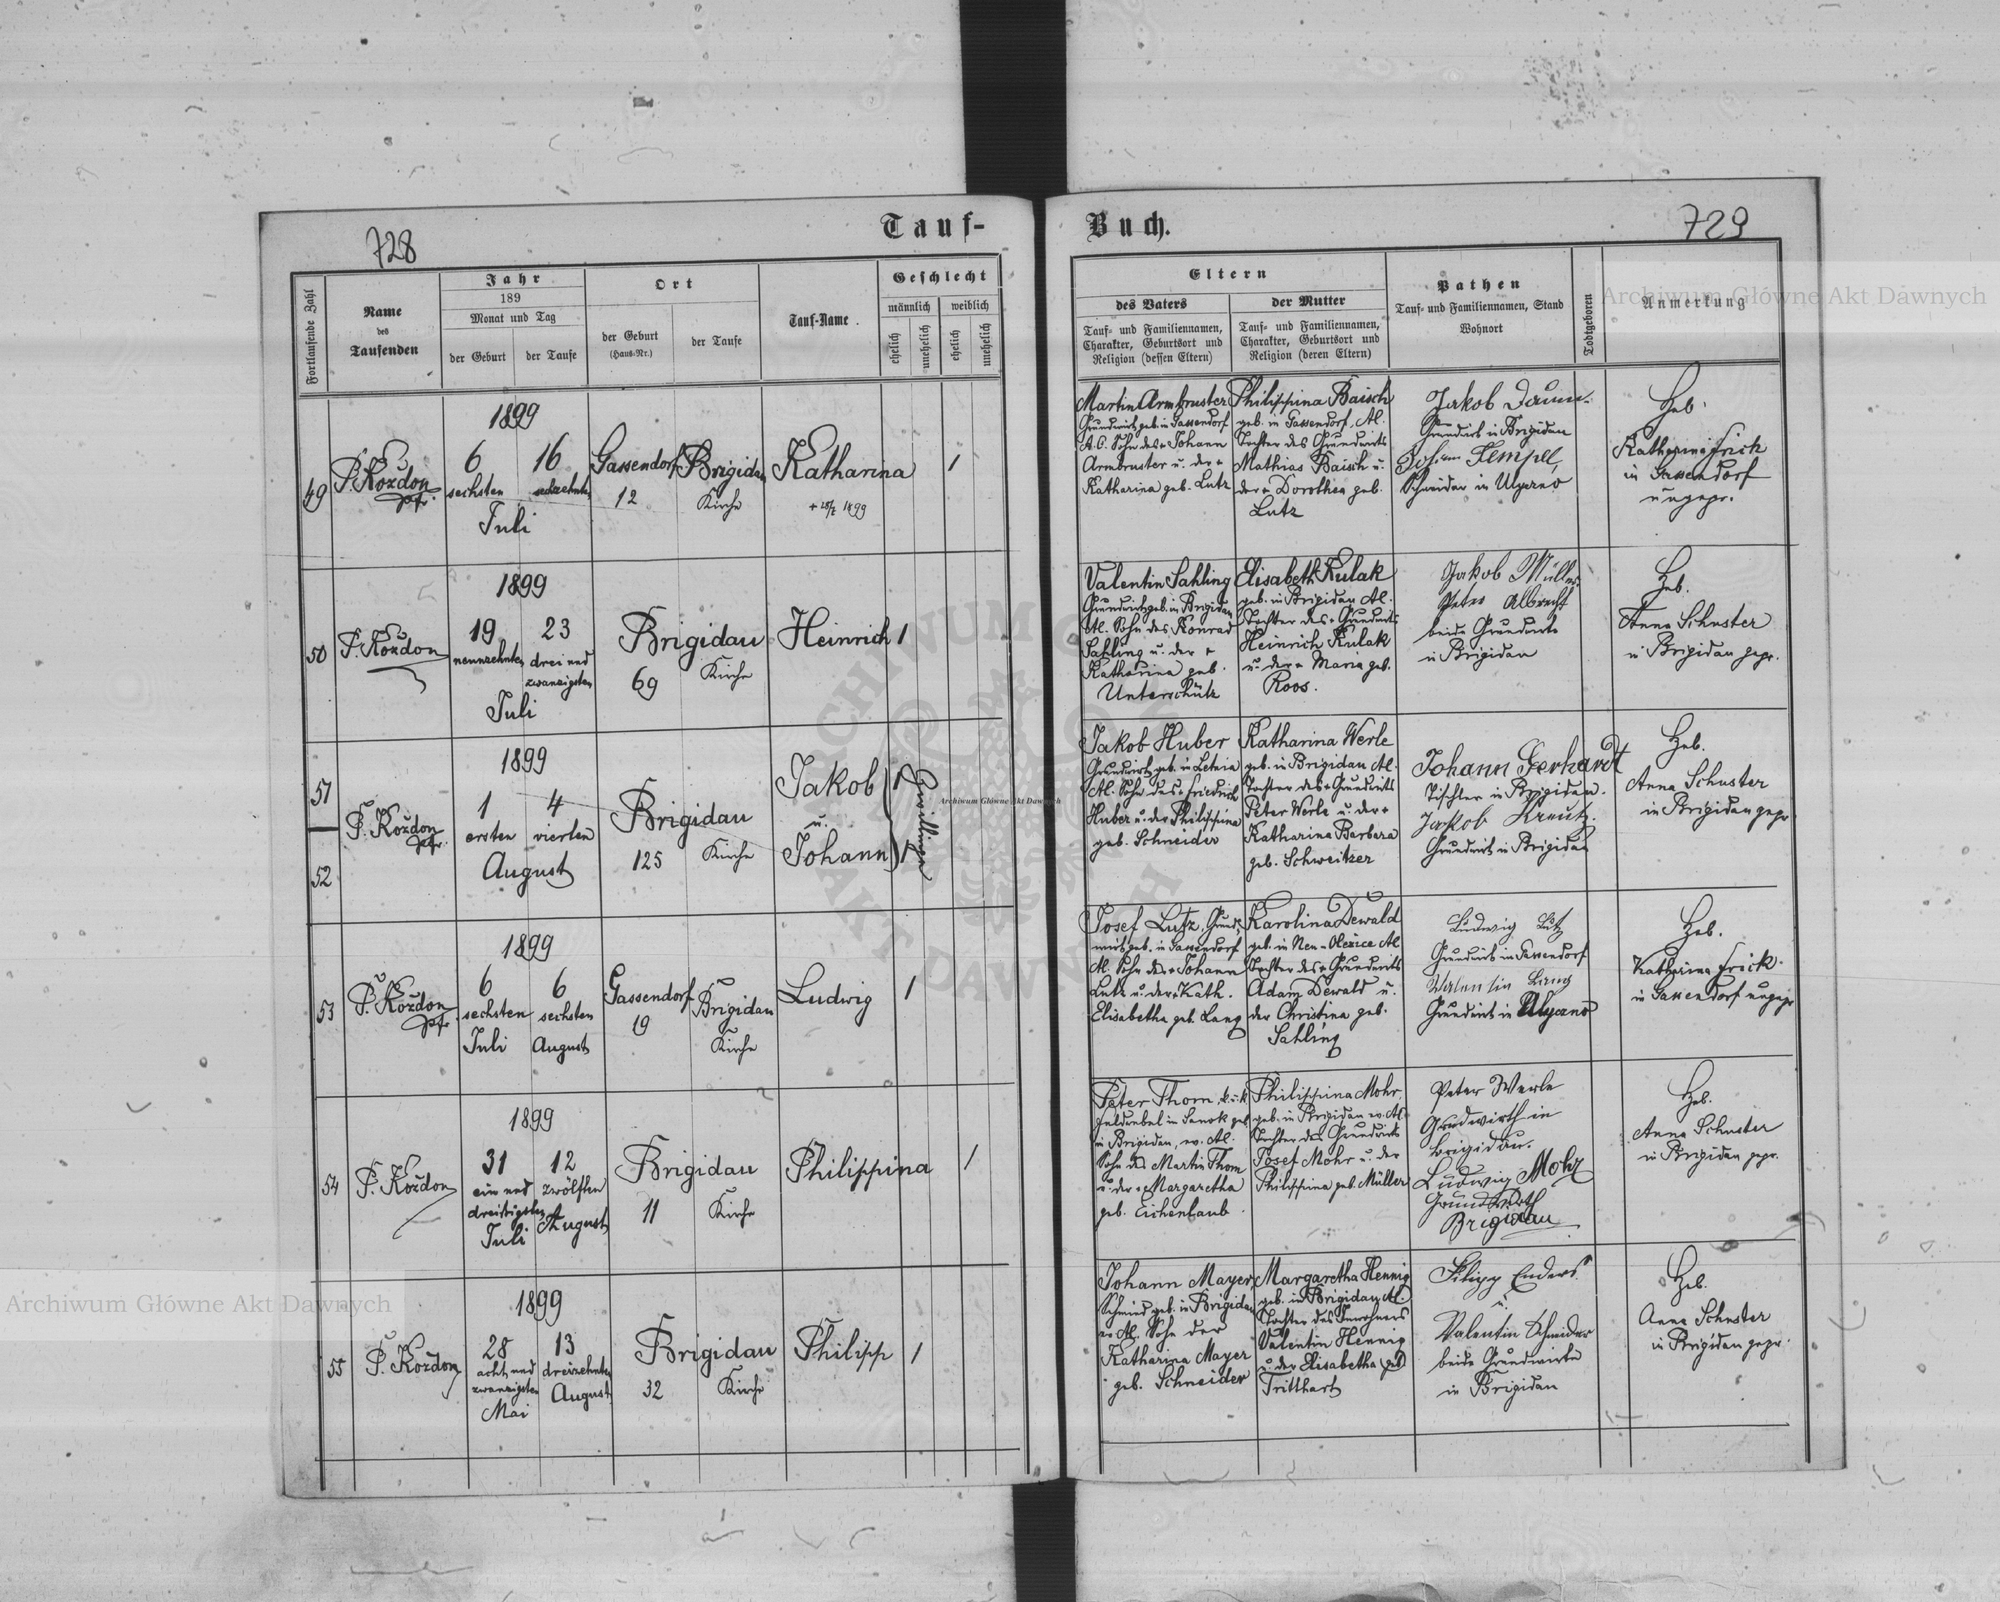 728
Tauf-
Fortlaufende Zahl
Name
des
Taufenden
Jahr
189
Monat und Tag
der Geburt
der Taufe
Ort
der Geburt
(Haus-Nr.)
der Taufe
Tauf-Name.
Geschlecht
männlich
weiblich
ehelich
unehelich
ehelich
unehelich
49
P. Kozdon
Pfr.
1899
6
sechsten
16
sechzehnten
Juli
Gassendorf
12
Brigidau
Kirche
Katharina
1899
1
50
P. Kozdon
1899
19
neunzehnten
23
drei und
zwanzigsten
Juli
Brigidau
69
Kirche
Heinrich
1
51
52
P. Kozdon
Pfr.
1899
1
ersten
4
vierten
August
Brigidau
125
Kirche
Jakob
u.
Johann
1
1
Zwillinge
53
P. Kozdon
Pfr.
1899
6
sechsten
Juli
6
sechsten
August
Gassendorf
19
Brigidau
Kirche
Ludwig
1
54
P. Kozdon
1899
31
ein und
dreißigsten
Juli
12
zwölften
August
Brigidau
11
Kirche
Philippina
1
55
P. Kozdon
1899
28
acht und
zwanzigsten
Mai
13
dreizehnten
August
Brigidau
32
Kirche
Philipp
1
Buch.
729
Eltern
des Vaters
Tauf- und Familiennamen,
Charakter, Geburtsort und
Religion (dessen Eltern)
der Mutter
Tauf- und Familiennamen,
Charakter, Geburtsort und
Religion (deren Eltern)
Pathen
Tauf- und Familiennamen, Stand
Wohnort
Todtgeboren
Anmerkung
Martin Armbruster
Grundwirt geb. in Gassendorf
A. C. Sohn des + Johann
Armbruster u. der +
Katharina geb. Lutz
Philippina Baisch
geb. in Gassendorf, Al.
Tochter des Grundwirts
Mathias Baisch u.
der + Dorothea geb.
Lutz
Jakob Daum
Grundwirt in Brigidau
Johann Tempel,
Schneider in Ugerno
Heb.
Katharina Frick
in Gassendorf
ungepr.
Valentin Sahling
Grundwirt geb. in Brigidau
Al. Sohn des Konrad
Sahling u. der +
Katharina geb.
Unterschütz
Elisabeth Kulak
geb. in Brigidau Al.
Tochter des + Grundwirts
Heinrich Kulak
u. der + Maria geb.
Roos.
Jakob Müller
Peter Albrecht
beide Grundwirte
in Brigidau
Heb.
Anna Schuster
in Brigidau gepr.
Jakob Huber
Grundwirt geb. in Letnia
Al. Sohn des + Friedrich
Huber u. der Philippina
geb. Schneider
Katharina Werle
geb. in Brigidau Al.
Tochter des + Grundwirts
Peter Werle u. der +
Katharina Barbara
geb. Schweitzer
Johann Gerhardt
Tischler in Brigidau.
Jakob Kreutz.
Grundwirt in Brigidau
Heb.
Anna Schuster
in Brigidau gepr.
Josef Lutz, Grund-
wirt geb. in Gassendorf
Al. Sohn des + Johann
Lutz u. der + Kath.
Elisabetha geb. Lang
Karolina Dewald
geb. in Neu-Olexice Al.
Tochter des + Grundwirts
Adam Dewald u.
der Christina geb.
Sahling
Ludwig Lutz
Grundwirt in Gassendorf
Valentin Lang
Grundwirt in Ugerno
Heb.
Katharina Frick.
in Gassendorf ungepr.
Peter Thom, k. u. k.
Feldwebel in Sanok geb.
in Brigidau, ev. Al.
Sohn des Martin Thom
u. der + Margaretha
geb. Eichenlaub
Philippina Mohr,
geb. in Brigidau ev. Al.
Tochter des Grundwirts
Josef Mohr u. der
Philippina geb. Müller
Peter Werle
Grundwirth in
Brigidau.
Ludwig Mohr
Grundwirth
Brigidau
Heb.
Anna Schuster
in Brigidau gepr.
Johann Mayer
Schmied geb. in Brigidau
ev. Al. Sohn der
Katharina Mayer
geb. Schneider
Margaretha Hennig
geb. in Brigidau Al.
Tochter des Inwohners
Valentin Hennig
u. der Elisabetha geb.
Tritthart
Filipp Enders
u.
Valentin Schneider
beide Grundwirte
in Brigidau
Heb.
Anna Schuster
in Brigidau gepr.
Archiwum Główne Akt Dawnych
Archiwum Główne Akt Dawnych
Archiwum Główne Akt Dawnych
ARCHIWUM GŁÓWNE AKT DAWNYCH